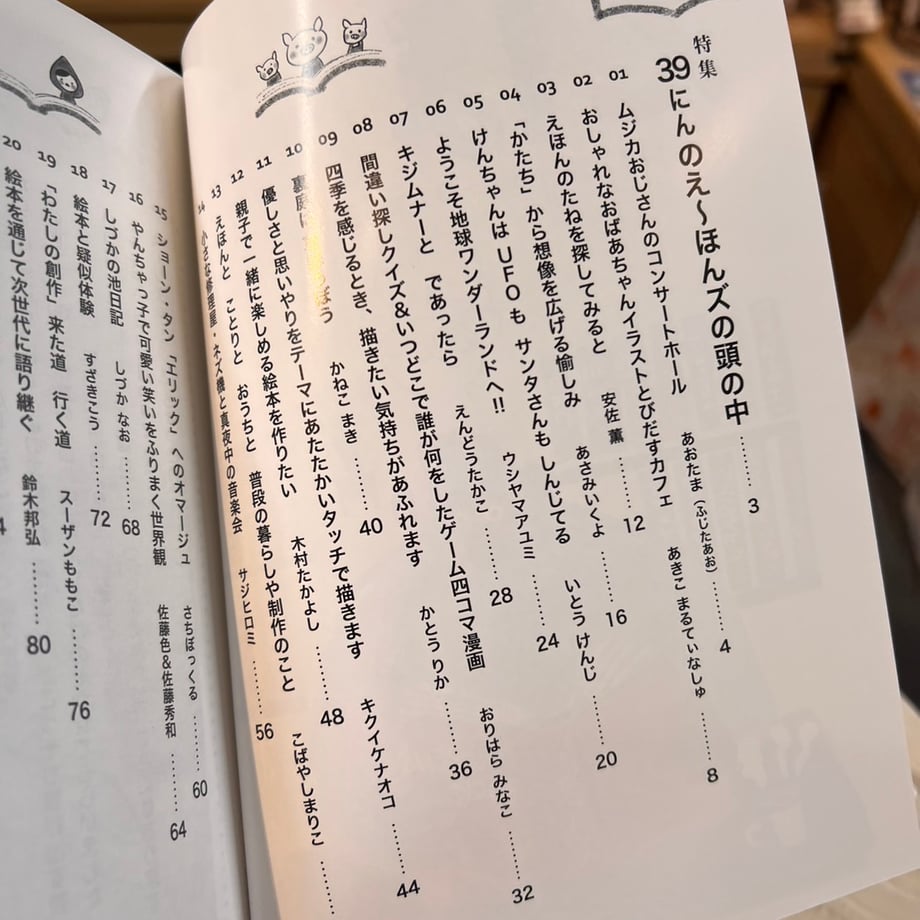 特集
39にんのえ〜ほんズの頭の中 ……… 3
01 ムジカおじさんのコンサートホール あおたま(ふじたあお) ……… 4
02 おしゃれなおばあちゃんイラストとびだすカフェ あきこ まるてぃなしゅ ……… 8
03 えほんのたねを探してみると 安佐 薫 ……… 12
04 「かたち」から想像を広げる愉しみ あさみいくよ ……… 16
05 けんちゃんは UFOも サンタさんも しんじてる いとう けんじ ……… 20
06 ようこそ地球ワンダーランドへ!! ウシヤマアユミ ……… 24
07 キジムナーと であったら えんどうたかこ ……… 28
08 間違い探しクイズ&いつどこで誰が何をしたゲーム四コマ漫画 おりはら みなこ ……… 32
09 四季を感じるとき、描きたい気持ちがあふれます かとう りか ……… 36
10 裏庭に かねこ まき ……… 40
11 優しさと思いやりをテーマにあたたかいタッチで描きます キクイケナオコ ……… 44
12 親子で一緒に楽しめる絵本を作りたい 木村たかよし ……… 48
13 えほんと ことりと おうちと 普段の暮らしや制作のこと こばやしまりこ ………
14 小さな修理屋・ネズ機と真夜中の音楽会 サジヒロミ ……… 56
15 ショーン・タン 「エリック」 へのオマージュ さちぼっくる ……… 60
16 やんちゃっ子で可愛い笑いをふりまく世界観 佐藤色&佐藤秀和 ……… 64
17 しづかの池日記 しづか なお ……… 68
18 絵本と疑似体験 すざきこう ……… 72
19 「わたしの創作」 来た道 行く道 スーザンももこ ……… 76
20 絵本を通じて次世代に語り継ぐ 鈴木邦弘 ……… 80